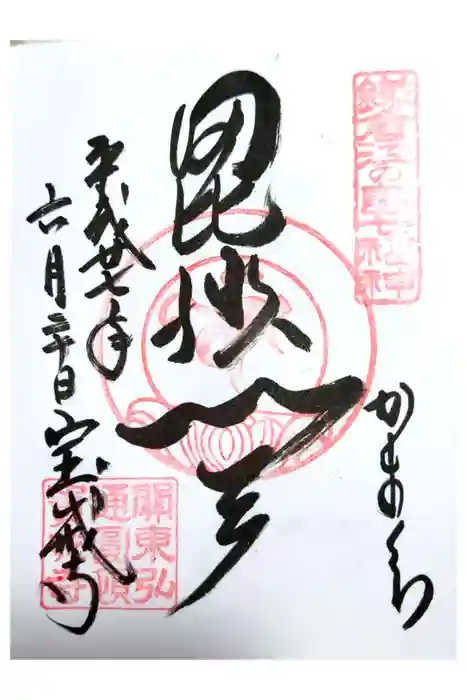 鎌倉江の島七福神
かまくら
毘沙門天
平成廿七年
六月二十日
宝戒寺
關東弘
通圓頓
宝戒寺